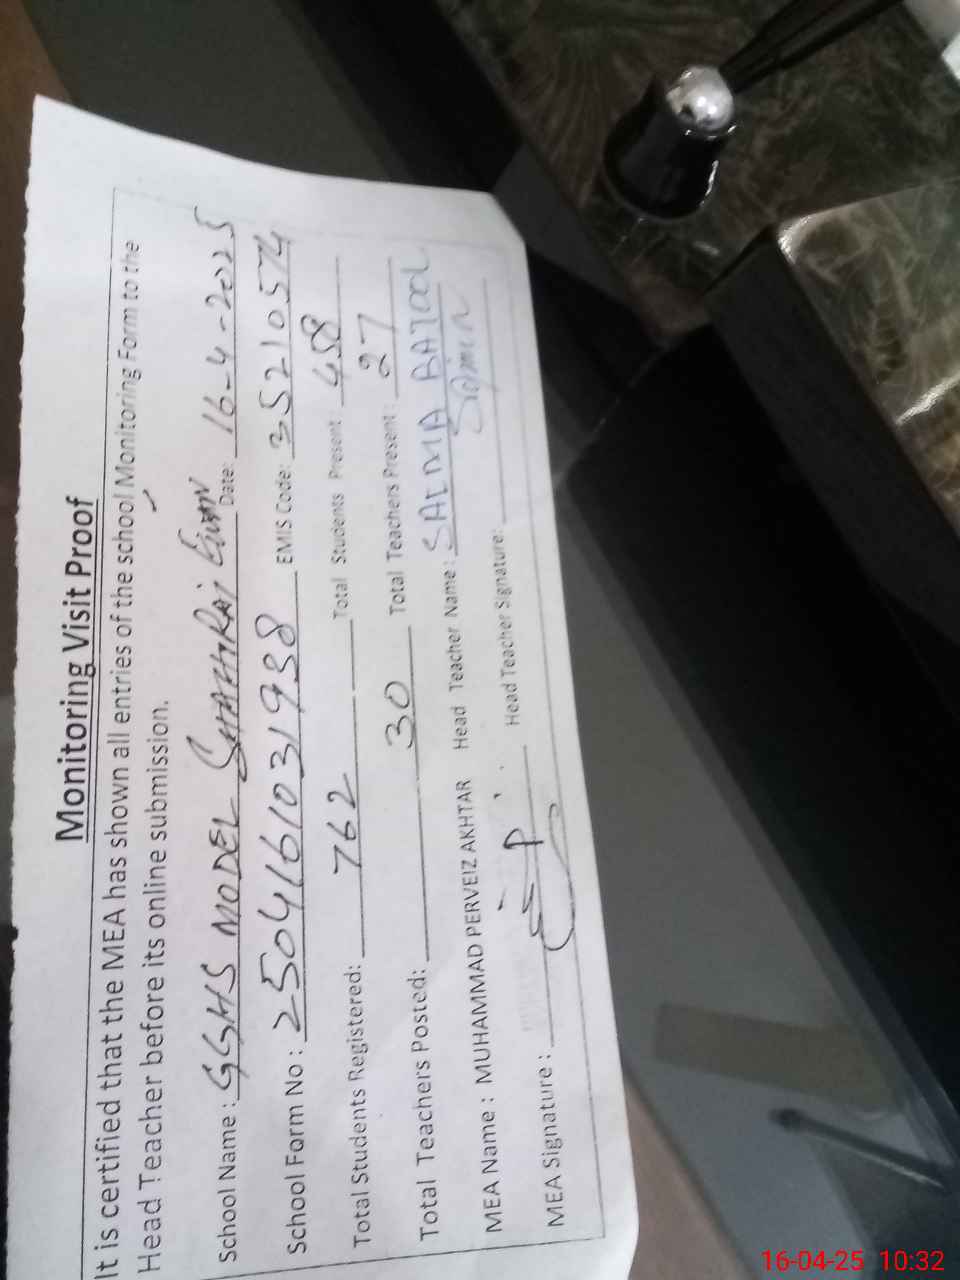 Monitoring Visit Proof
It is certified that the MEA has shown all entries of the school Monitoring Form to the
Head Teacher before its online submission.
School Name : GGHS MODEL Date: 16-4-2025
School Form No : 2504161031938 EMIS Code: 35210574
Total Students Registered: 762 Total Students Present: 458
Total Teachers Posted: 30 Total Teachers Present: 27
MEA Name : MUHAMMAD PERVEIZ AKHTAR Head Teacher Name: SALMA BATOOL
MEA Signature : Head Teacher Signature:
16-04-25 10:32